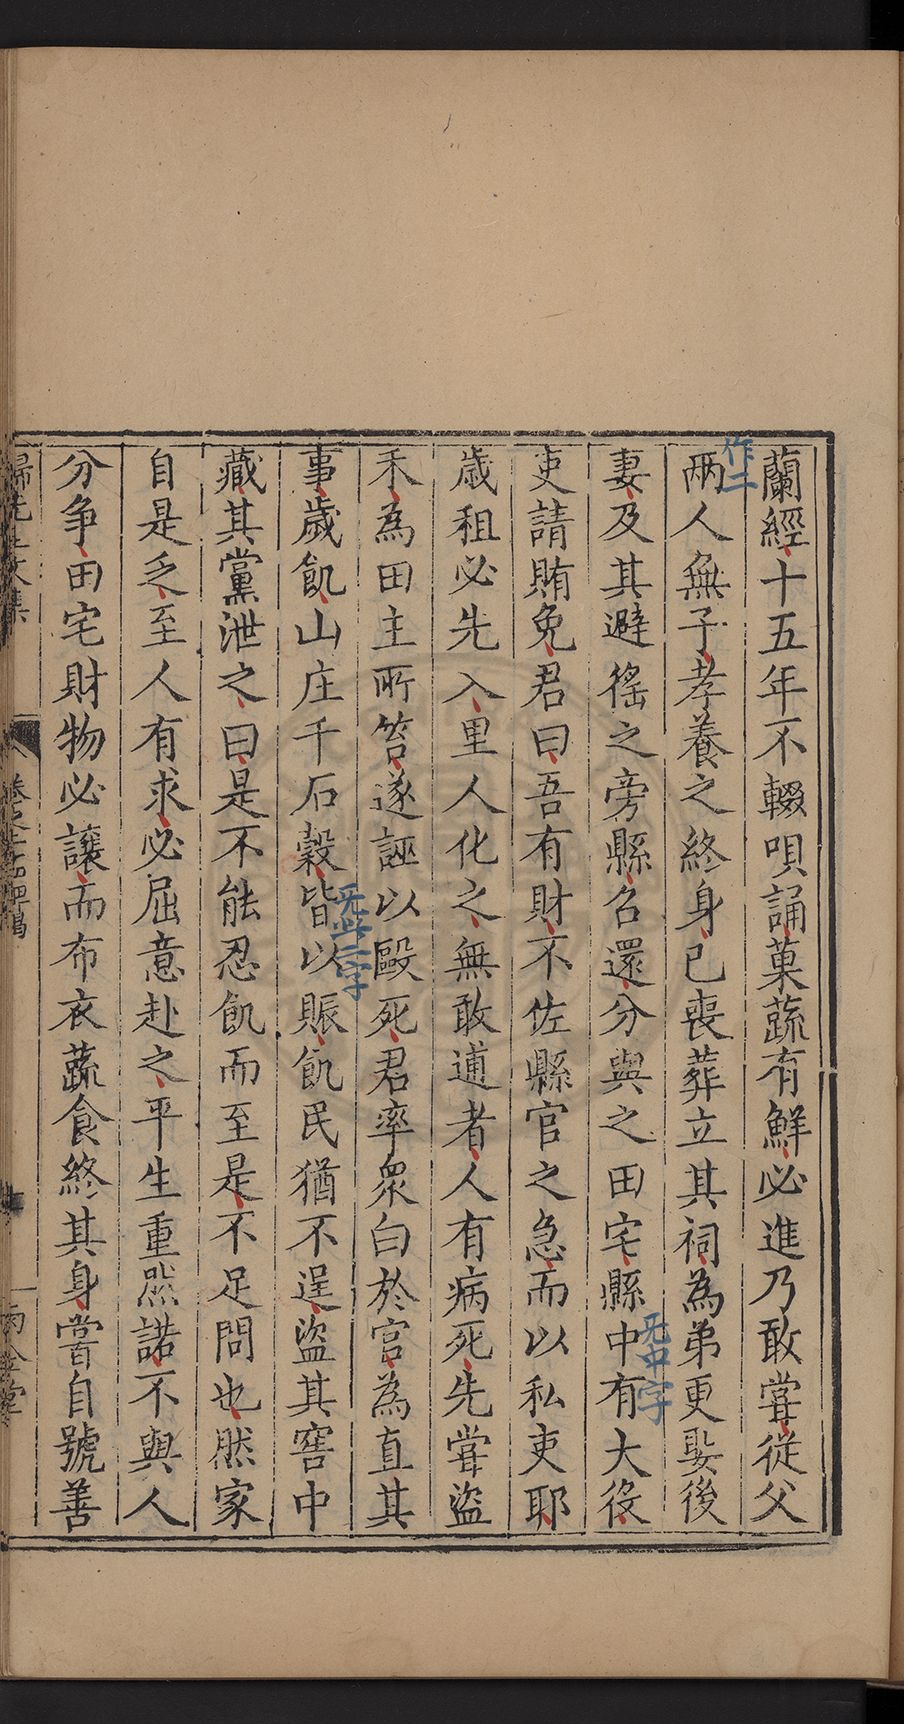 蘭經十五年不輟唄誦菓蔬有鮮必進乃敢嘗從父
兩人無子孝養之終身已喪葬立其祠為弟更娶後
作二
妻及其避徭之旁縣名還分與之田宅縣中有大役
无中字
吏請賄免君曰吾有財不佐縣官之急而以私吏耶
歲租必先入里人化之無敢逋者人有病死先嘗盜
禾為田主所笞遂誣以毆死君率眾白於官為直其
事歲飢山庄千石穀皆以賑飢民猶不逞盜其窖中
藏其黨泄之曰是不能忍飢而至是不足問也然家
自是乏至人有求必屈意赴之平生重然諾不與人
分爭田宅財物必讓而布衣蔬食終其身嘗自號善